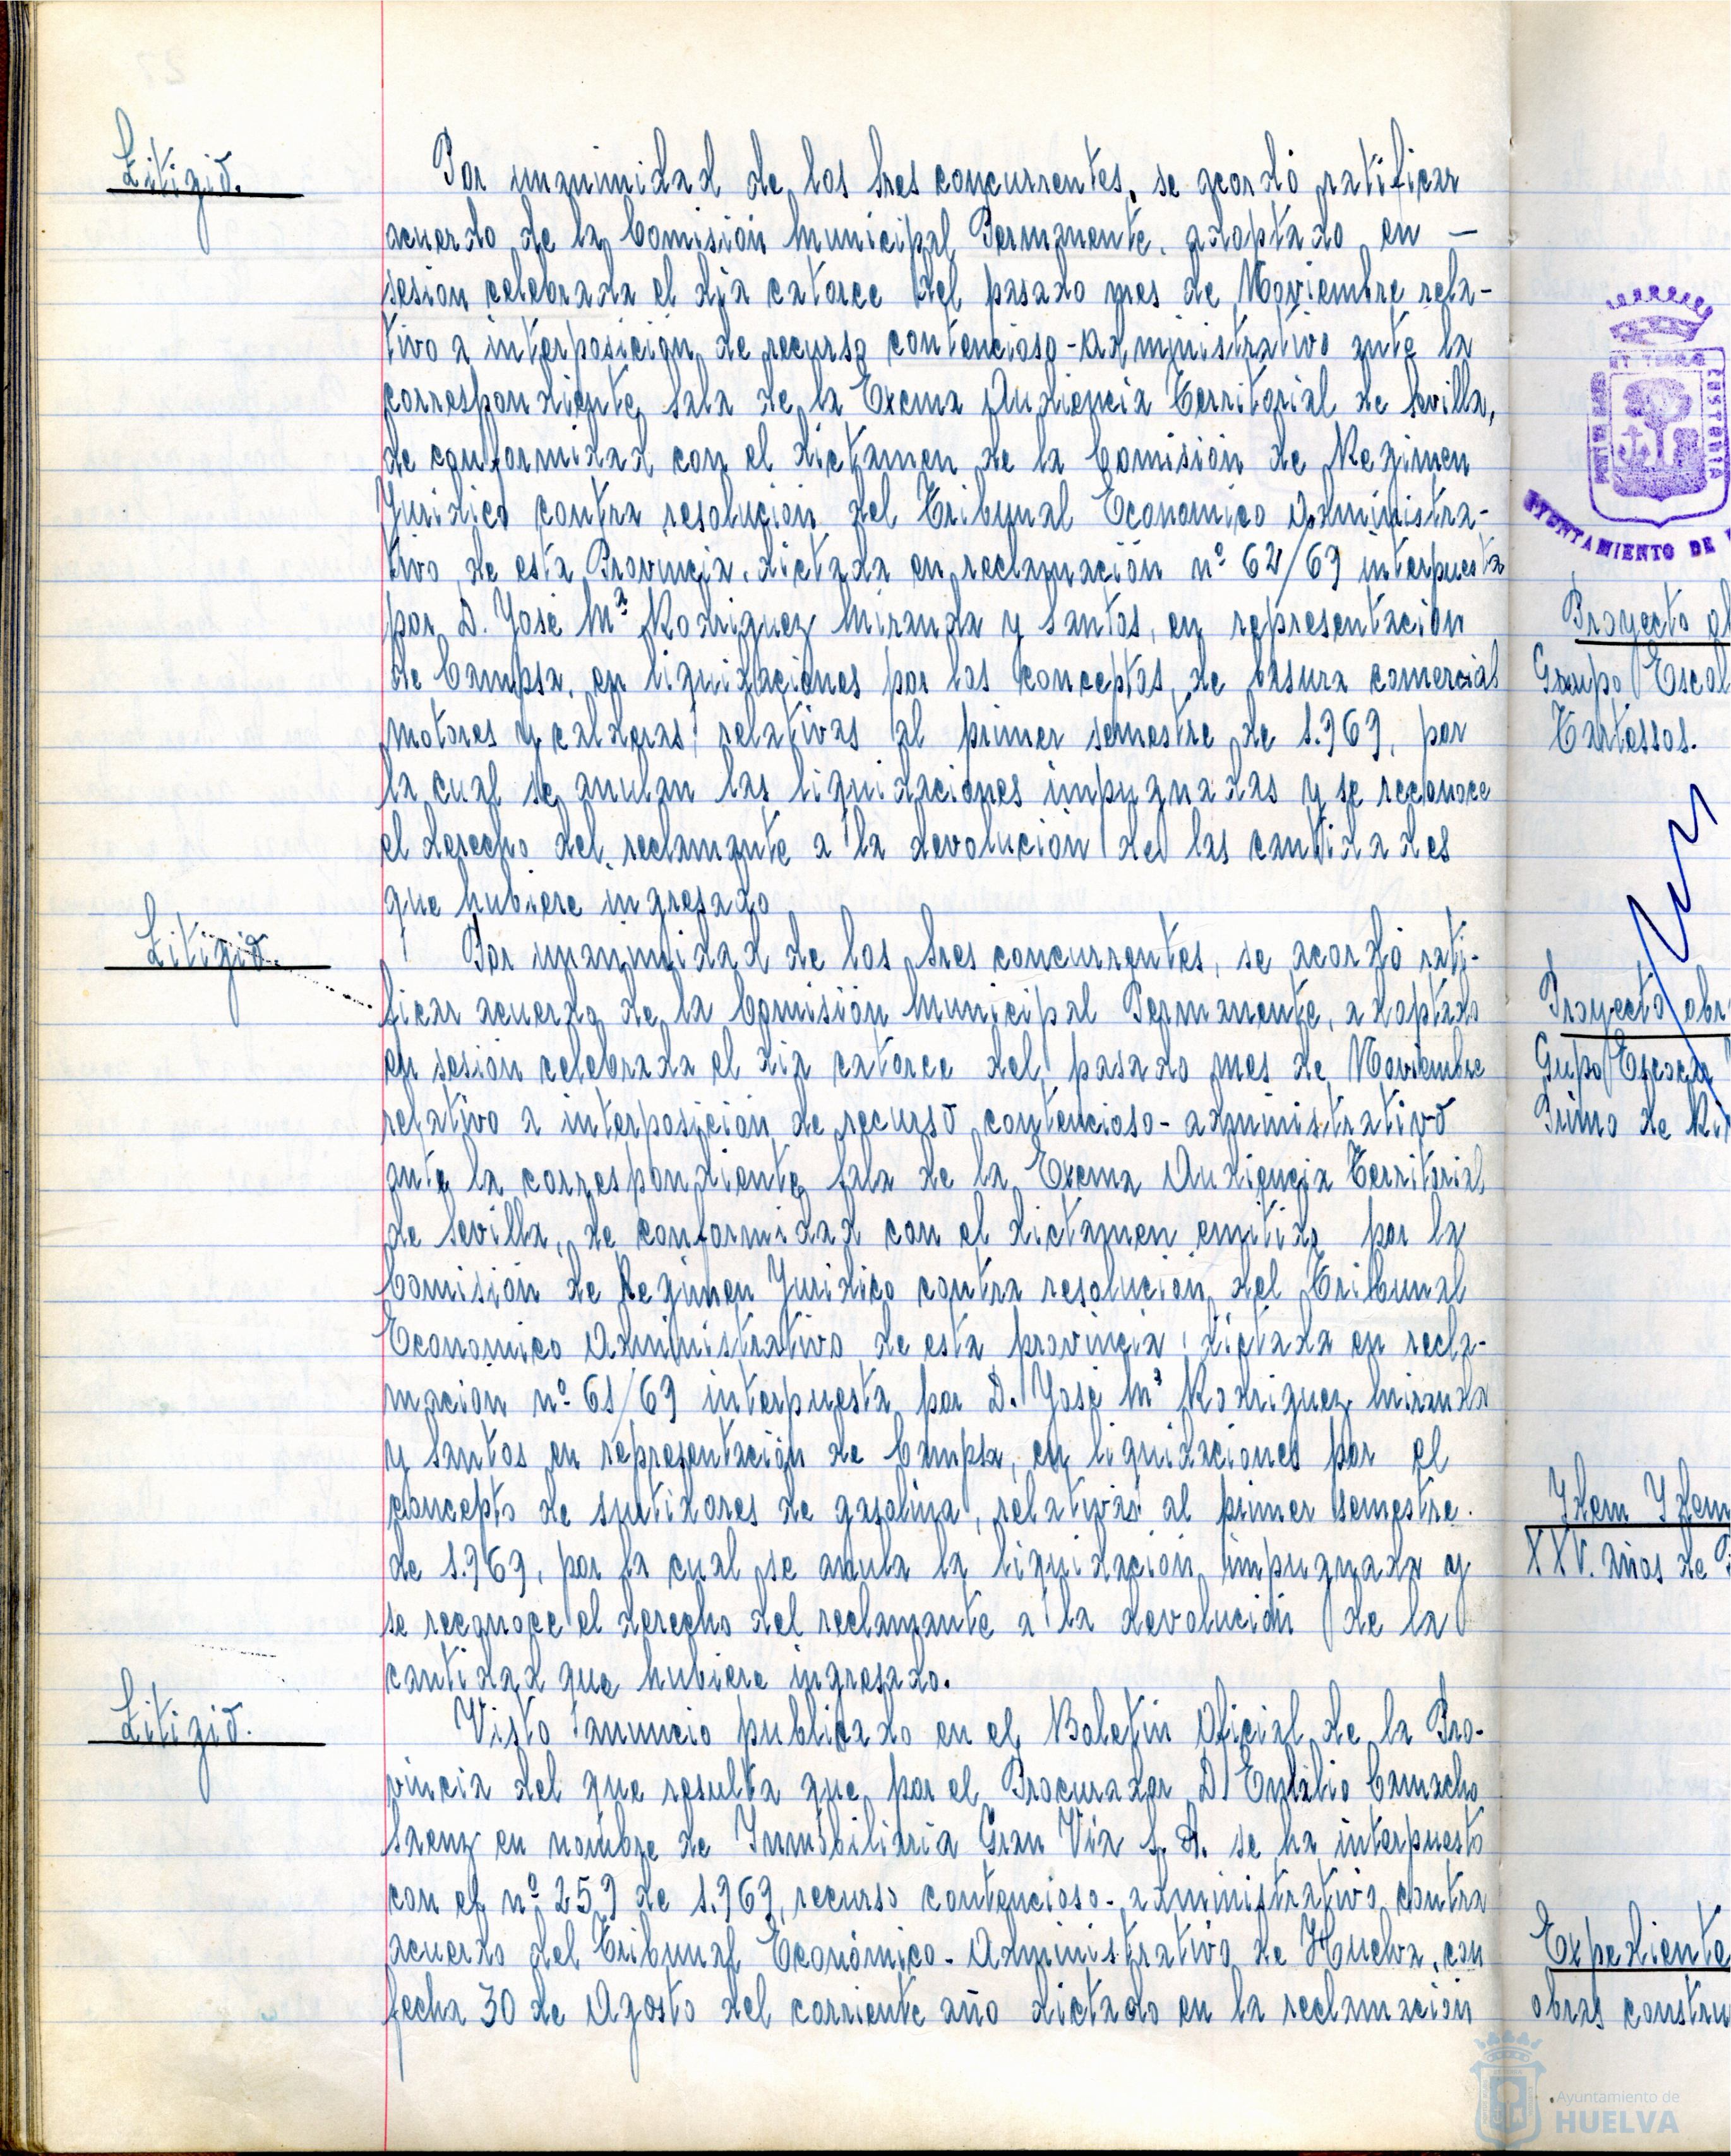 Litigio.
Por unanimidad de los Sres concurrentes, se acordó ratificar
acuerdo de la Comisión Municipal Permanente, adoptado en —
sesion celebrada el dia catorce del pasado mes de Noviembre rela-
tivo a interposición de recurso contencioso-administrativo ante la
correspondiente Sala de la Excma Audiencia Territorial de Sevilla,
de conformidad con el dictamen de la Comisión de Regimen
Juridico contra resolucion del Tribunal Economico Administra-
tivo de esta Provincia, dictada en reclamación nº 62/69 interpuesta
por D. José Mª Rodriguez Miranda y Santos, en representación
de Campsa, en liquidaciones por los conceptos de basura comercial
motores y calderas, relativas al primer semestre de 1.969, por
la cual se anulan las liquidaciones impugnadas y se reconoce
el derecho del reclamante a la devolución de las cantidades
que hubiere ingresado
Litigio.
Por unanimidad de los Sres concurrentes, se acordó rati-
ficar acuerdo de la Comisión Municipal Permanente, adoptado
en sesión celebrada el dia catorce del pasado mes de Noviembre
relativo a interposición de recurso contencioso-administrativo
ante la correspondiente Sala de la Excma Audiencia Territorial
de Sevilla, de conformidad con el dictamen emitido por la
Comisión de Regimen Juridico contra resolucion del Tribunal
Economico Administrativo de esta provincia, dictada en recla-
macion nº 61/69 interpuesta por D. José Mª Rodriguez Miranda
y Santos en representación de Campsa, en liquidaciones por el
concepto de surtidores de gasolina, relativas al primer semestre.
de 1.969, por la cual se anula la liquidación impugnada y
se reconoce el derecho del reclamante a la devolución de la
cantidad que hubiere ingresado.
Litigio.
Visto anuncio publicado en el Boletin Oficial de la Pro-
vincia del que resulta que por el Procurador D. Eulalio Camacho
Saenz en nombre de Inmobiliaria Gran Via S.A. se ha interpuesto
con el nº 259 de 1.969, recurso contencioso-administrativo contra
acuerdo del Tribunal Económico-Administrativo de Huelva, con
fecha 30 de Agosto del corriente año dictado en la reclamación
AYUNTAMIENTO DE
Proyecto
Grupo Escol
Tartessos.
Proyecto obr
Gupo Escolar
Primo de Ri
Ydem Ydem
XXV. años de
Expediente
obras constru
Ayuntamiento de
HUELVA